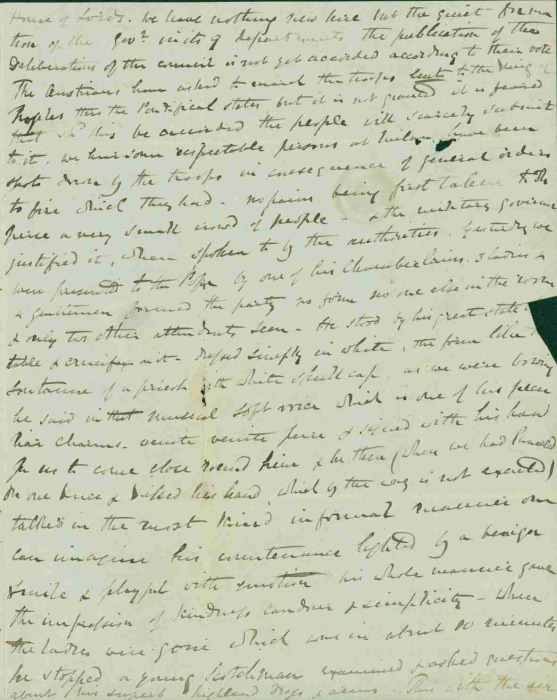 House of Lords. We have nothing new here but the quiet forma
tion of the Govt. visits of departments the publication of the
Deliberations of the council is not yet accorded according to their vote
The Austrians have asked to march the troops sent to the King of
Naples thro the Pontifical states but it is not granted it is feared
shd this be accorded the people will scarcely submit
to it. We hear some respectable persons at Milan have been
shot down by the troops in consequence of general orders
to fire which they had - no pains being first taken to dis
perse a very small crowd of people - & the military governor
justified it, when spoken to by the authorities. Yesterday we
were presented to the Pope by one of his Chamberlains. 3 ladies &
& gentlemen formed the party no form no one else in the room
& only two other attendants seen - He stood by his great state
table & crucifix - dressed simply in white, the form like
soutanne of a priest with white skull cap, as we were bowing
he said in that musical soft voice which is one of his pecu
liar charms - venite venite pure & signed with his hand
for us to come close round him & he then (when we had kneeled
on one knee & kissed his hand, which by the way is not exacted)
talked in the most kind informal manner one
can imagine his countenance lighted by a benign
smile & playful with his whole manner gave
the impression of kindness candour & simplicity - when
the ladies were gone which was in about 10 minutes
he stopped a young Scotchman examined & asked questions
about his superb highland dress & arms This with the